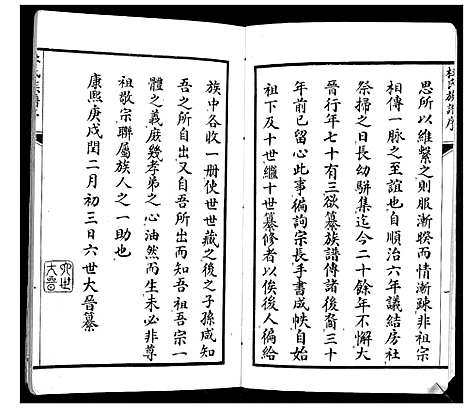 杜氏族譜序
思所以維繫之則服漸睽而情漸疎非祖宗
相傳一脈之至誼也自順治六年議結房社
祭掃之日長幼駢集迄今二十餘年不解大
晉行年七十有三欲纂族譜傳諸後裔三十
年前已留心此事徧詢宗長手書成帙自始
祖下及十世繼十世纂修者以俟後人徧給
族中各收一册使世世藏之後之子孫咸知
吾之所自出又自吾所出而知吾祖吾宗一
體之義庶幾孝弟之心油然而生未必非尊
祖敬宗聯屬族人之一助也
康熙庚戌閏二月初三日六世大晉纂
六世
大晉